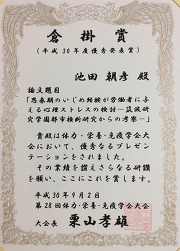 倉掛賞
(平成30年度優秀発表賞)
池田朝彦 殿
論文題目
「思春期のいじめ経験が労働者に与
える心理ストレスの検討―筑波研
究学園都市横断研究からの考察―」
貴殿は体力・栄養・免疫学会大会
において、優秀なるプレゼン
テーションをされました。
その業績を讃えさらなる研鑽
を願い、ここにこれを賞します。
平成30年9月2日
第28回体力・栄養・免疫学会大会
大会長 栗山孝雄